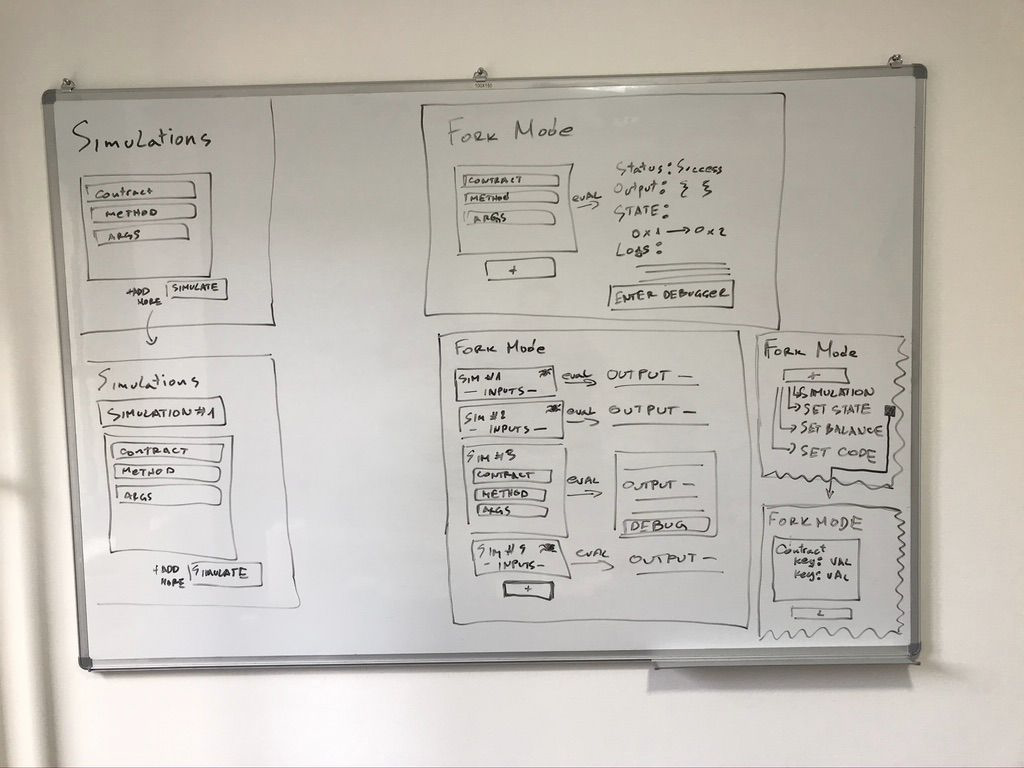 100x150
Simulations
Contract
METHOD
ARGS
+ADD MORE
SIMULATE
Simulations
SIMULATION #1
CONTRACT
METHOD
ARGS
+ADD MORE
SIMULATE
FORK MODE
CONTRACT
METHOD
ARGS
+
EVAL
Status: Success
Output: { }
STATE:
0x1 → 0x2
LOGS:
ENTER DEBUGGER
FORK MODE
SIM #1
- INPUTS -
EVAL
OUTPUT -
SIM #2
- INPUTS -
EVAL
OUTPUT -
SIM #3
CONTRACT
METHOD
ARGS
EVAL
OUTPUT -
DEBUG
- INPUTS -
EVAL
OUTPUT -
+
FORK MODE
+
SIMULATION
SET STATE
SET BALANCE
SET CODE
FORK MODE
Contract
Key: VAL
Key: VAL